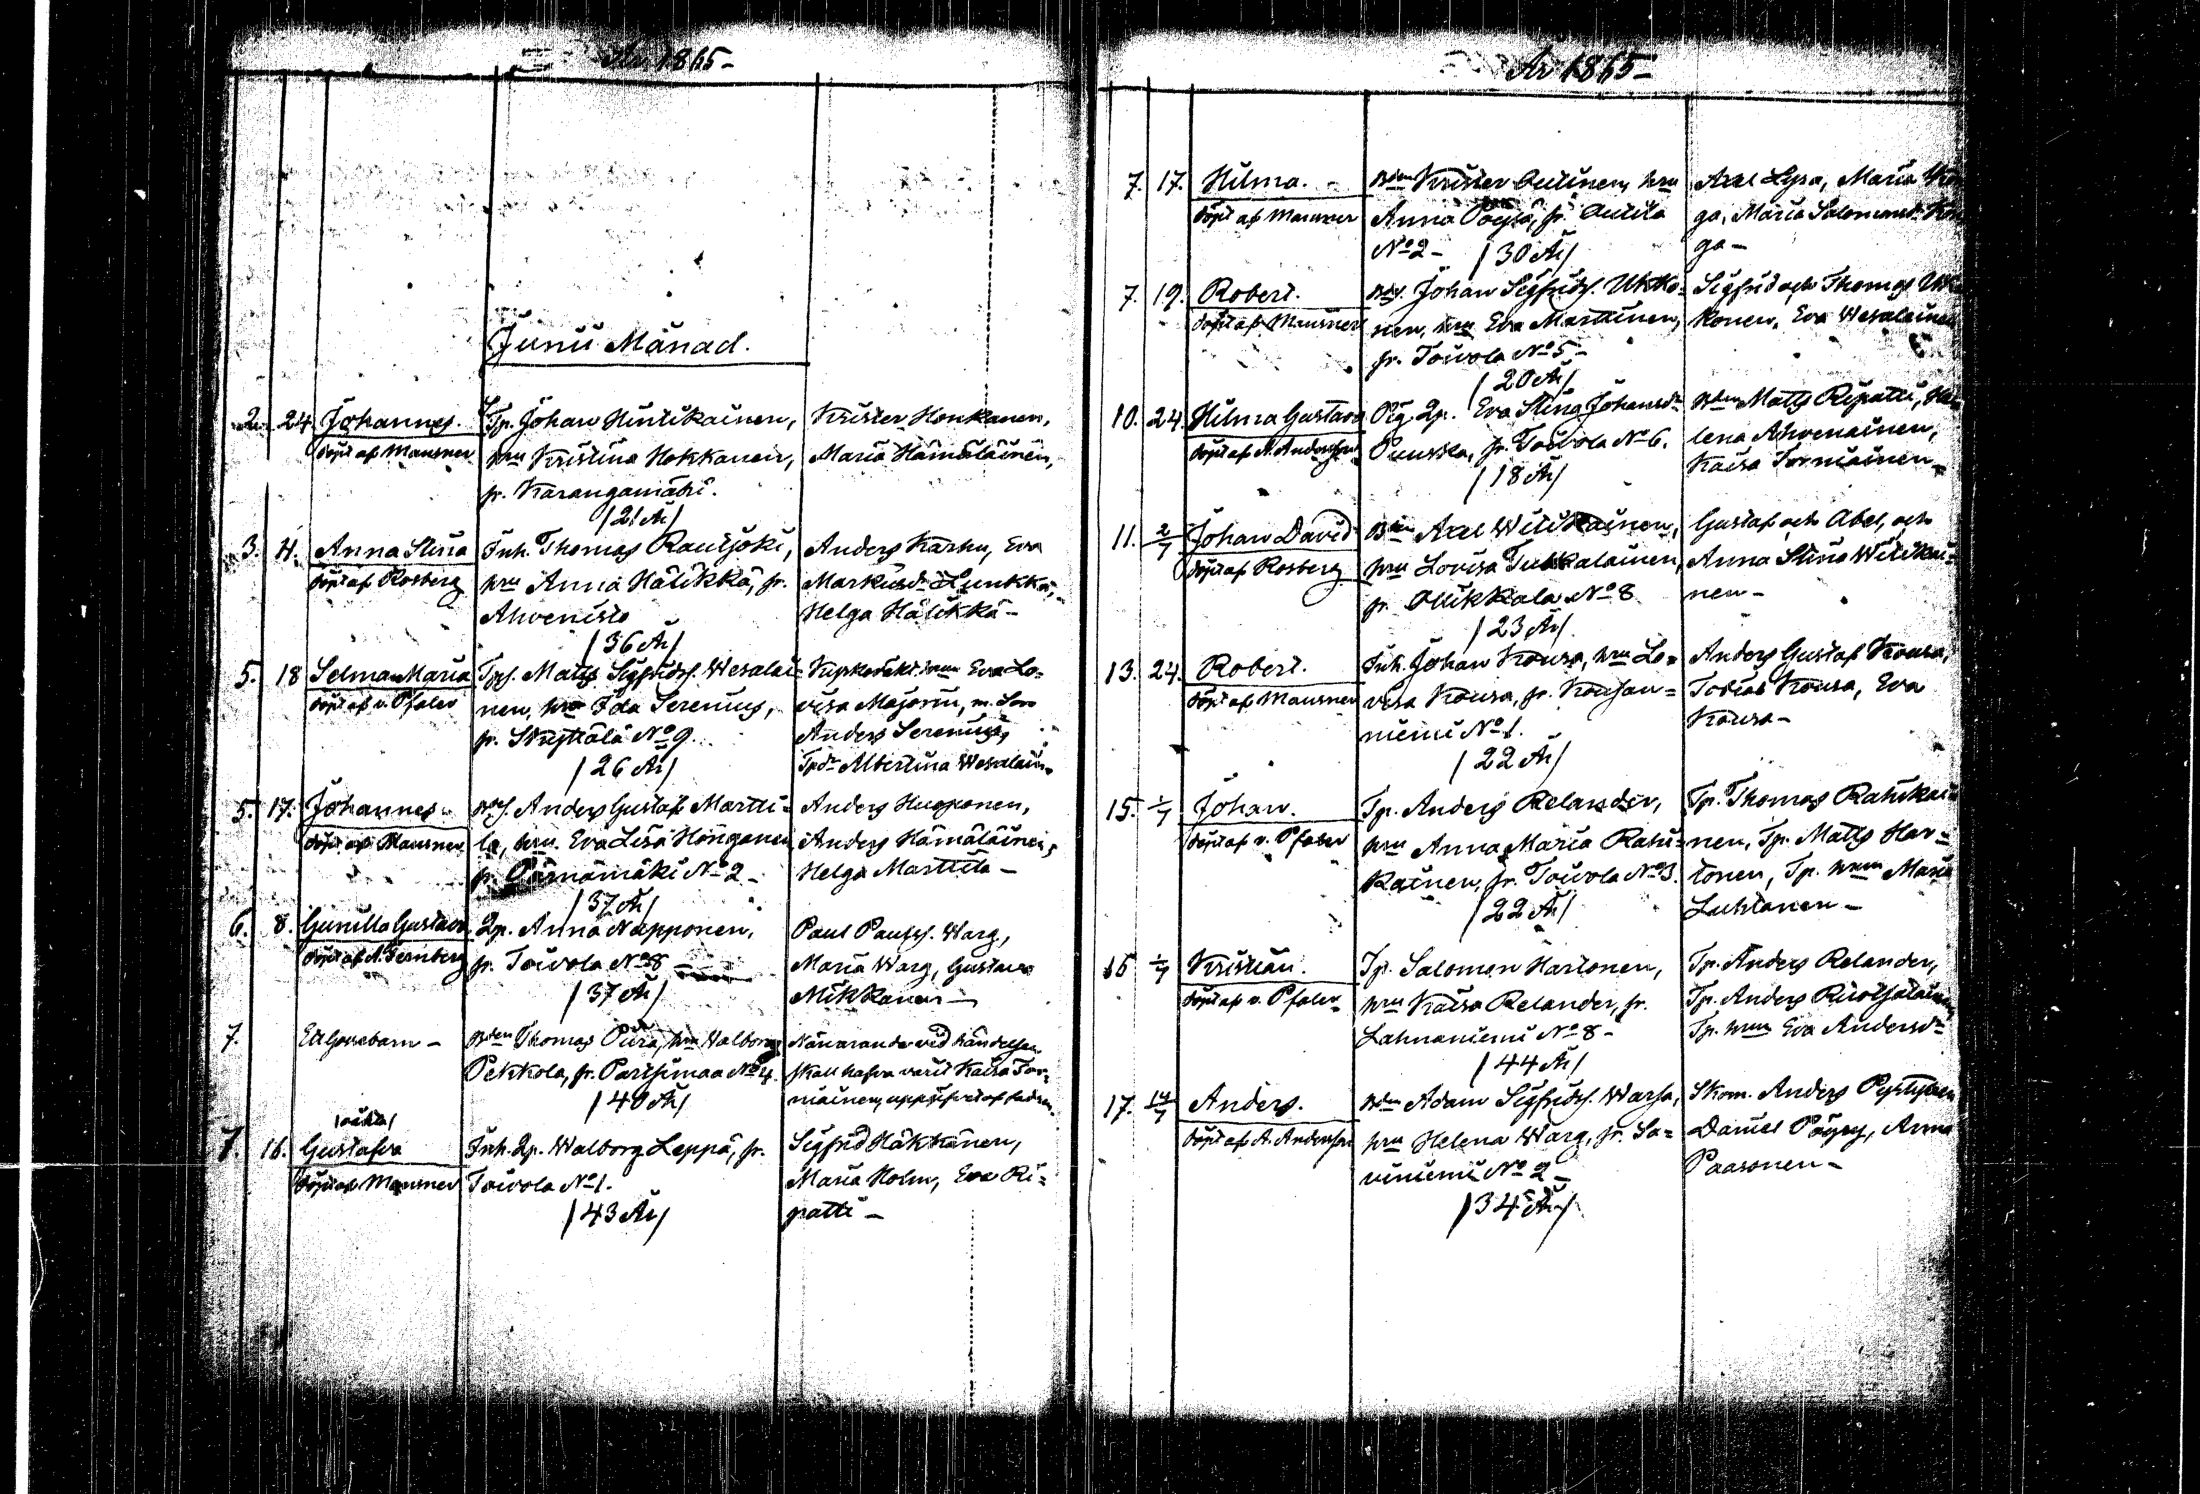 År 1865-
Junii Månad.
2. 24. Johannes.
döpt af Mausner
Tp. Johan Hintikainen,
hru Kristina Hokkanen,
fr. Karangamäki.
/21 År/
Krister Honkanen,
Maria Hämäläinen,
3. 4. Anna Stina
döpt af Rosberg
Inh. Thomas Rautjoki,
hru Anna Hälikkä, fr.
Ahvenisto
/36 År/
Anders Karhu, Eva
Markusdr Lunkka,
Helga Hälikkä-
5. 18 Selma Maria
döpt af v. Pfaler
Tps. Matts Sigfridss. Wesalai=
nen, hru Ida Serenius,
fr. Skyttälä No 9.
/26 År/
Eva Lo=
visa Majorin, m. Son
Anders Serenius,
Tpdr Albertina Wesalain.
5. 17. Johannes.
döpt af Mausner
Anders Gustaf Martti=
la, hru Eva Lisa Honganen
fr. Pärnämäki No 2-
/37 År/
Anders Hupponen,
Anders Hämäläinen,
Helga Marttila-
6. 8. Gunilla Gustava
döpt af A. Fernberg
Qp. Anna Nepponen,
fr. Toivola No 8-
/37 År/
Paul Paulss. Warg,
Maria Warg, Gustava
Mikkonen-
7. Ett gossebarn-
Bden Thomas Pura, hru Walborg
Pekkola, fr. Partsimaa No 4.
/40 År/
Närvarande vid händelsen
skall hafva varit Kaisa Tor=
niainen, uppgifvet af fadren.
/oäkta/
7. 16. Gustafva
döpt af Mausner
Inh. Qp. Walborg Leppä, fr.
Toivola No 1.
/43 År/
Sigfrid Häkkänen,
Maria Holm, Eva Ri=
patti-
År 1865-
7. 17. Hilma.
döpt af Mausner
Bden Krister Autinen, hru
Anna Pöyrä, fr. Autila
No 2- /30 År/
Axel Lyra, Maria
ga, Maria Salomonsdr
ga-
7. 19. Robert.
döpt af Mausner
Johan Sigfridss. Ukko=
nen, hru Eva Marttinen,
fr. Toivola No 5-
/20 År/
Sigfrid och Thomas Uk
konen, Eva Wesalainen
10. 24. Hilma Gustava
döpt af A. Andersson
Pig. Qp. Eva Stina Johansdr
Puuska, fr. Toivola No 6.
/18 År/
Bden Matts Ripatti, He
lena Ahvenainen,
Kaisa Torniainen-
11. 2/7 Johan David
döpt af Rosberg
Bden Axel Wilikainen,
hru Lovisa Tukkalainen,
fr. Ollikkala No 8
/23 År/
Gustaf och Abel, och
Anna Stina Wilikai=
nen-
13. 24. Robert.
döpt af Mausner
Inh. Johan Kousa, hru Lo=
visa Kousa, fr. Kousan=
niemi No 1.
/22 År/
Anders Gustaf Kousa,
Tobias Kousa, Eva
Kousa-
15. 1/7 Johan.
döpt af v. Pfaler
Tp. Anders Relander,
hru Anna Maria Rahi=
kainen, fr. Toivola No 3.
/22 År/
Tp. Thomas Rahikai
nen, Tp. Matts Har=
tonen, Tp. hrun Maria
Luhtanen-
16 1/7 Kristian.
döpt af v. Pfaler
Tp. Salomon Hartonen,
hru Kaisa Relander, fr.
Lahnaniemi No 8-
/44 År/
Tp. Anders Relander,
Tp. Anders Ruotsalainen
Tp. hrun Eva Andersdr
17. 14/7 Anders.
döpt af A. Andersson
Bden Adam Sigfridss. Warsa,
hru Helena Warg, fr. Sa=
viniemi No 2-
/34 År/
Skom. Anders Pystynen
Daniel Pöyry, Anna
Paasonen-